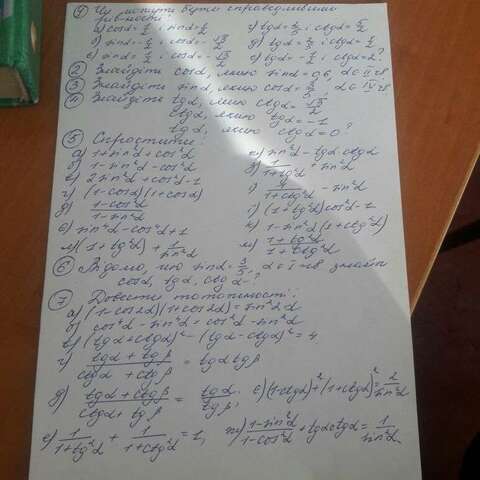 ① Чи можуть бути справедливими
рівності:
а) cosα = 1/2 і sinα = 1/2
г) tgα = 2/5 і ctgα = 5/2
б) sinα = 1/2 і cosα = -√3/2
② Знайдіть cosα, якщо sinα = 0,6, α є II чв
③ Знайдіть sinα, якщо cosα = 3/5, α є IV чв
④ Знайдіть tgα, якщо ctgα = √3/2
ctgα, якщо tgα = -1
tgα, якщо ctgα = 0?
⑤ Спростити:
а) 1 + sin²α + cos²α
б) 1 - sin²α - cos²α
в) 2sin²α + cos²α - 1
г) (1 - cosα)(1 + cosα)
д) 1 - cos²α / 1 - sin²α
е) sin²α - cos²α + 1
є) sin²α - tgα ctgα
з) 1/1 + tg²α + sin²α
і) 1/1 + ctg²α - sin²α
ї) (1 + tg²α) cos²α - 1
к) 1 - sin²α (1 + ctg²α)
л) (1 + tg²α) + 1/sin²α
м) 1 + tg²α / 1 + ctg²α
⑥ Відомо, що sinα = 3/5, α є I чв знайти
cosα, tgα, ctgα - ?
⑦ Довести тотожності:
а) (1 - cos2α)(1 + cos2α) = sin²2α
б) cos⁴α - sin⁴α = cos²α - sin²α
в) (tgα + ctgα)² - (tgα - ctgα)² = 4
г) tgα + tgβ / ctgα + ctgβ = tgα tgβ
д) tgα + ctgβ / ctgα + tgβ = tgα / tgβ; е) (1 - ctgα)² + (1 + ctgα)² = 2/sin²α
є) 1/1 + tg²α + 1/1 + ctg²α = 1, ж) 1 - sin²α / 1 - cos²α + tgα ctgα = 1/sin²α